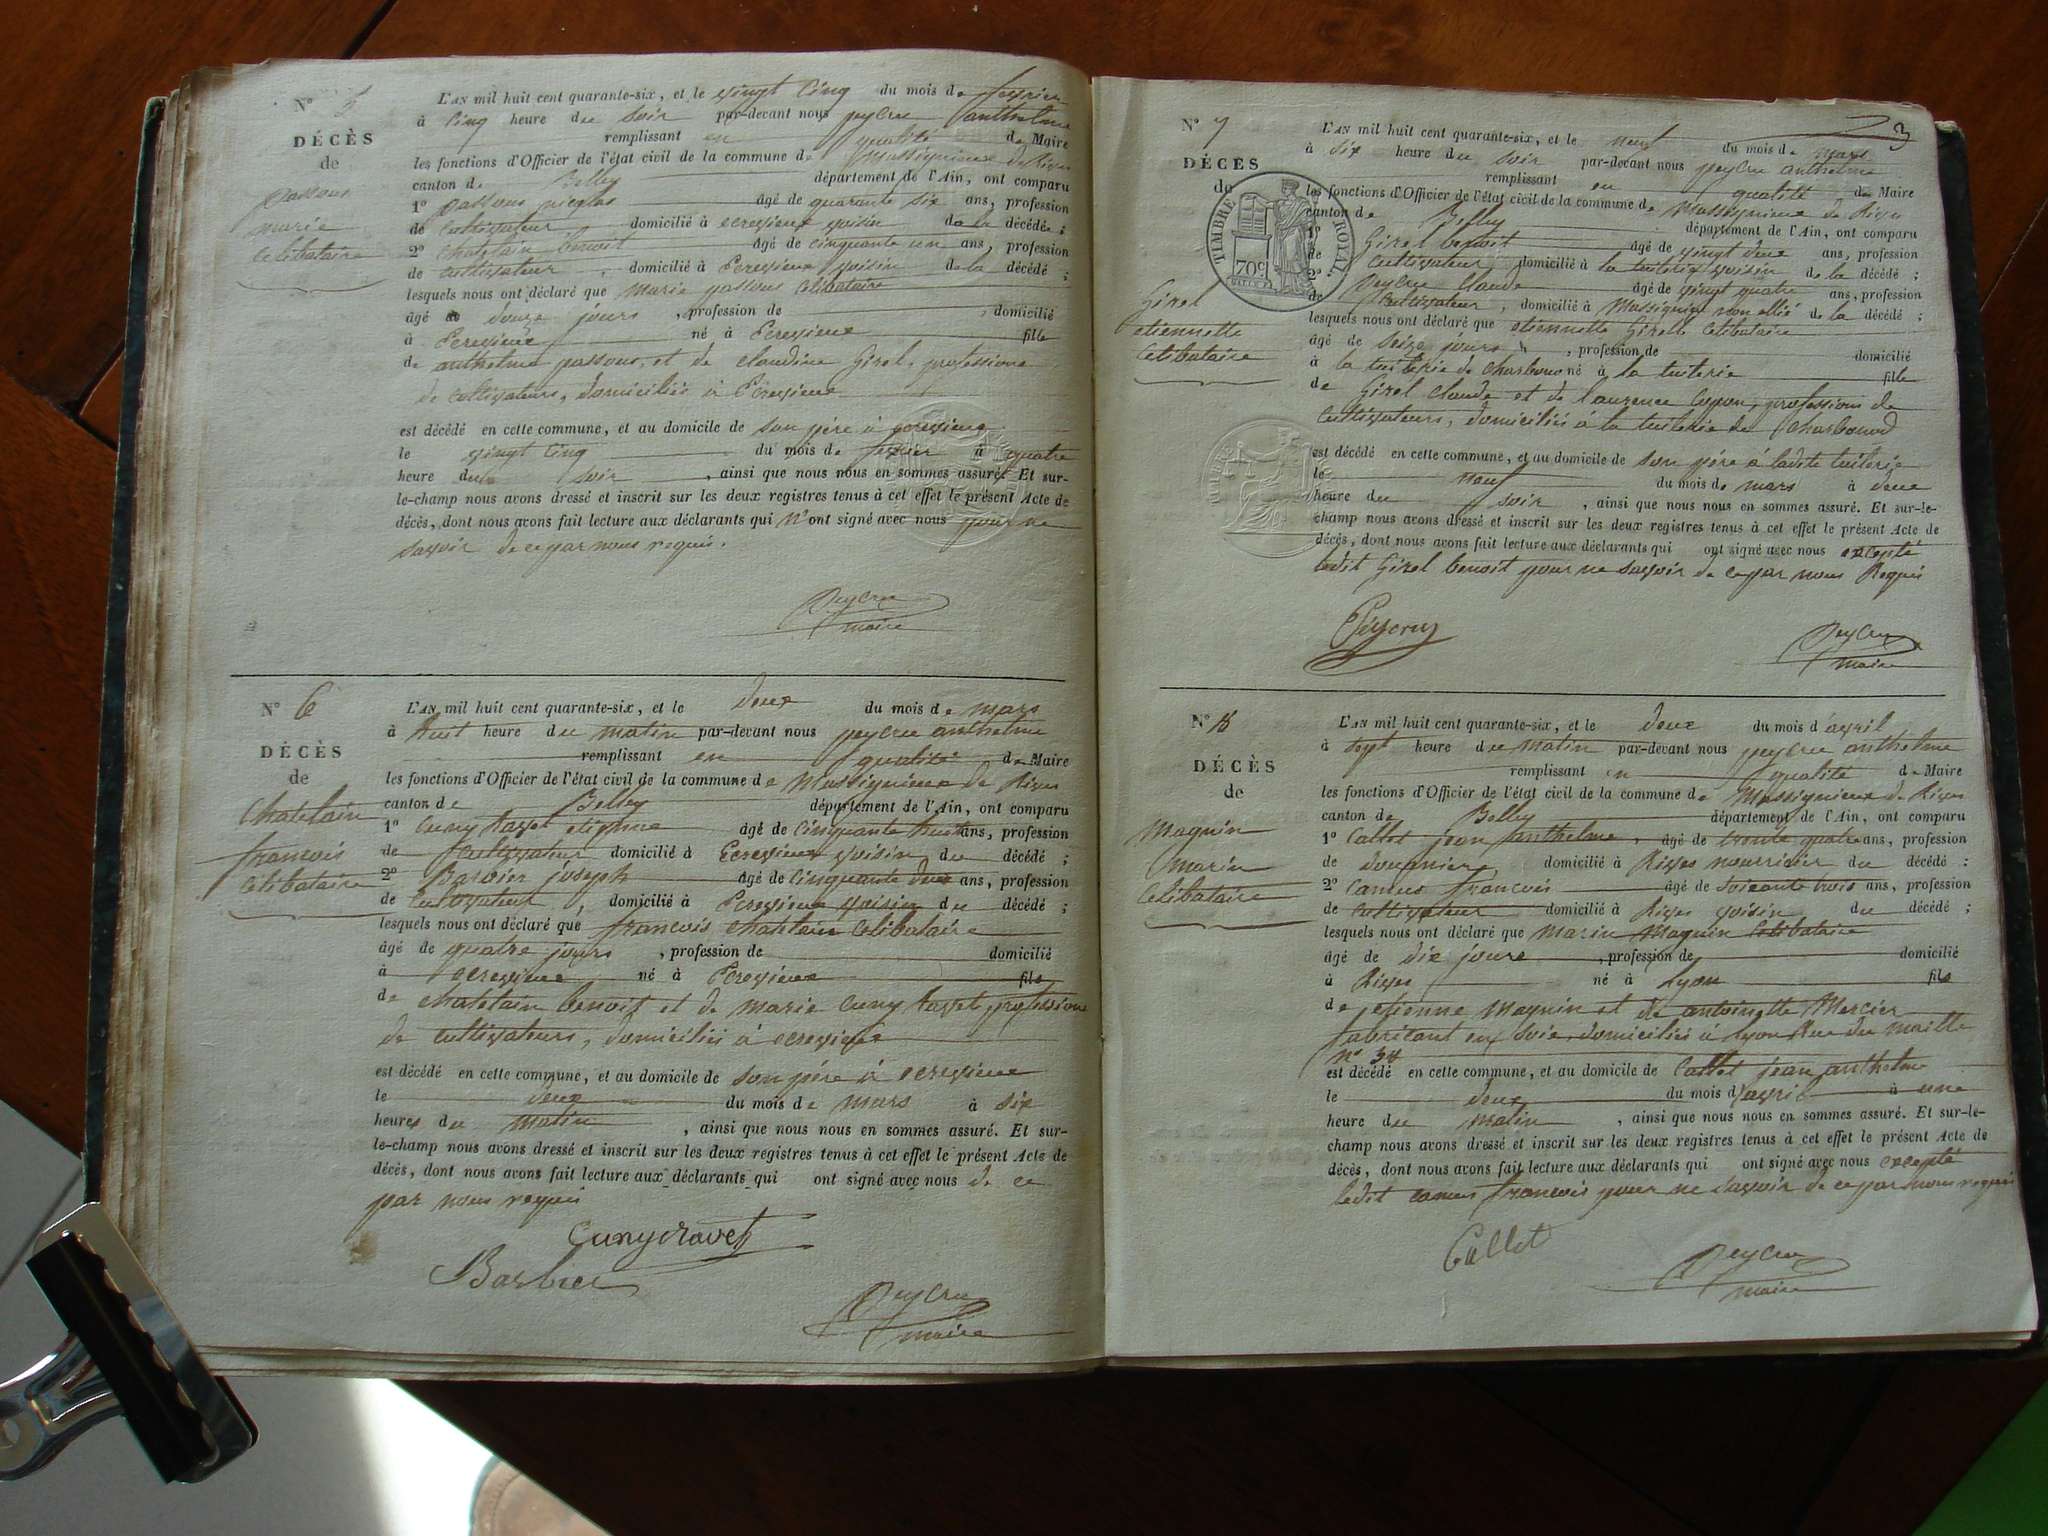 N° 5
DÉCÈS
de
passous
marie
celibataire
L'AN mil huit cent quarante-six, et le vingt cinq du mois de fevrier
à cinq heure du soir par-devant nous peycru anthelme
remplissant en qualité de Maire
les fonctions d'Officier de l'état civil de la commune de Massignieux de Rives
canton de Belley département de l'Ain, ont comparu
1° passous nicolas âgé de quarante six ans, profession
de cultivateur domicilié à ecrevieux voisin de la décédée ;
2° chatelain benoit âgé de cinquante un ans, profession
de cultivateur , domicilié à Ecrevieux voisin de la décédé ;
lesquels nous ont déclaré que marie passous celibataire
âgé de douze jours , profession de , domicilié
à Ecrevieux né à Ecrevieux fille
de anthelme passous, et de claudine Girel, professions
de cultivateurs, domiciliés à Ecrevieux
est décédé en cette commune, et au domicile de son père à ecrevieux
le vingt cinq du mois de fevrier à quatre
heure du soir , ainsi que nous nous en sommes assuré. Et sur-
le-champ nous avons dressé et inscrit sur les deux registres tenus à cet effet le présent Acte de
décès, dont nous avons fait lecture aux déclarants qui n'ont signé avec nous pour ne
savoir de ce par nous requis.
Peycru
maire
N° 6
DÉCÈS
de
Chatelain
francois
celibataire
L'AN mil huit cent quarante-six, et le deux du mois de mars
à huit heure du matin par-devant nous peycru anthelme
remplissant en qualité de Maire
les fonctions d'Officier de l'état civil de la commune de Massignieux de Rives
canton de Belley département de l'Ain, ont comparu
1° Cuny ravet etienne âgé de cinquante huit ans, profession
de cultivateur domicilié à Ecrevieux voisin du décédé ;
2° Barbier joseph âgé de cinquante deux ans, profession
de cultivateur , domicilié à Ecrevieux voisin du décédé ;
lesquels nous ont déclaré que francois chatelain celibataire
âgé de quatre jours , profession de domicilié
à ecrevieux né à Ecrevieux fils
de chatelain benoit et de marie cuny ravet professions
de cultivateurs, domiciliés à ecrevieux
est décédé en cette commune, et au domicile de son père à ecrevieux
le deux du mois de mars à six
heures du matin , ainsi que nous nous en sommes assuré. Et sur-
le-champ nous avons dressé et inscrit sur les deux registres tenus à cet effet le présent Acte de
décès, dont nous avons fait lecture aux déclarants qui ont signé avec nous de ce
par nous requis
Cuny Ravet
Barbier
Peycru
maire
3
N° 7
DÉCÈS
de
TIMBRE ROYAL
70c
Girel
etiennette
celibataire
L'AN mil huit cent quarante-six, et le neuf du mois de mars
à six heure du soir par-devant nous peycru anthelme
remplissant en qualité de Maire
les fonctions d'Officier de l'état civil de la commune de Massignieux de Rives
canton de Belley département de l'Ain, ont comparu
1° Girel benoit âgé de vingt deux ans, profession
de cultivateur domicilié à la tuilerie voisin de la décédé ;
2° Peycru Claude âgé de vingt quatre ans, profession
de cultivateur , domicilié à Massignieux non allié de la décédé ;
lesquels nous ont déclaré que etiennette Girel celibataire
âgé de seize jours , profession de domicilié
à la tuilerie de charbonod né à la tuilerie fille
de Girel Claude et de laurence professions de
cultivateurs, domiciliés à la tuilerie de charbonod
est décédé en cette commune, et au domicile de son père à ladite tuilerie
le neuf du mois de mars à deux
heure du soir , ainsi que nous nous en sommes assuré. Et sur-le-
champ nous avons dressé et inscrit sur les deux registres tenus à cet effet le présent Acte de
décès, dont nous avons fait lecture aux déclarants qui ont signé avec nous excepté
ledit Girel benoit pour ne savoir de ce par nous Requis
Peycru
Peycru
maire
N° 8
DÉCÈS
de
Magnin
Marin
celibataire
L'AN mil huit cent quarante-six, et le deux du mois d'avril
à sept heure du matin par-devant nous peycru anthelme
remplissant en qualité de Maire
les fonctions d'Officier de l'état civil de la commune de Massignieux de Rives
canton de Belley département de l'Ain, ont comparu
1° Callet jean anthelme , âgé de trente quatre ans, profession
de douanier domicilié à Rives nourricier du décédé ;
2° Camus francois âgé de soixante trois ans, profession
de cultivateur domicilié à Rives voisin du décédé ;
lesquels nous ont déclaré que Marin Magnin celibataire
âgé de dix jours , profession de domicilié
à Rives né à Lyon fils
de etienne Magnin et de antoinette Mercier
fabricant en soie domiciliés à Lyon Rue du Maille
n° 34
est décédé en cette commune, et au domicile de Callet jean anthelme
le deux du mois d'avril à une
heure du matin , ainsi que nous nous en sommes assuré. Et sur-le-
champ nous avons dressé et inscrit sur les deux registres tenus à cet effet le présent Acte de
décès, dont nous avons fait lecture aux déclarants qui ont signé avec nous excepté
ledit camus francois pour ne savoir de ce par nous requis
Callet
Peycru
maire